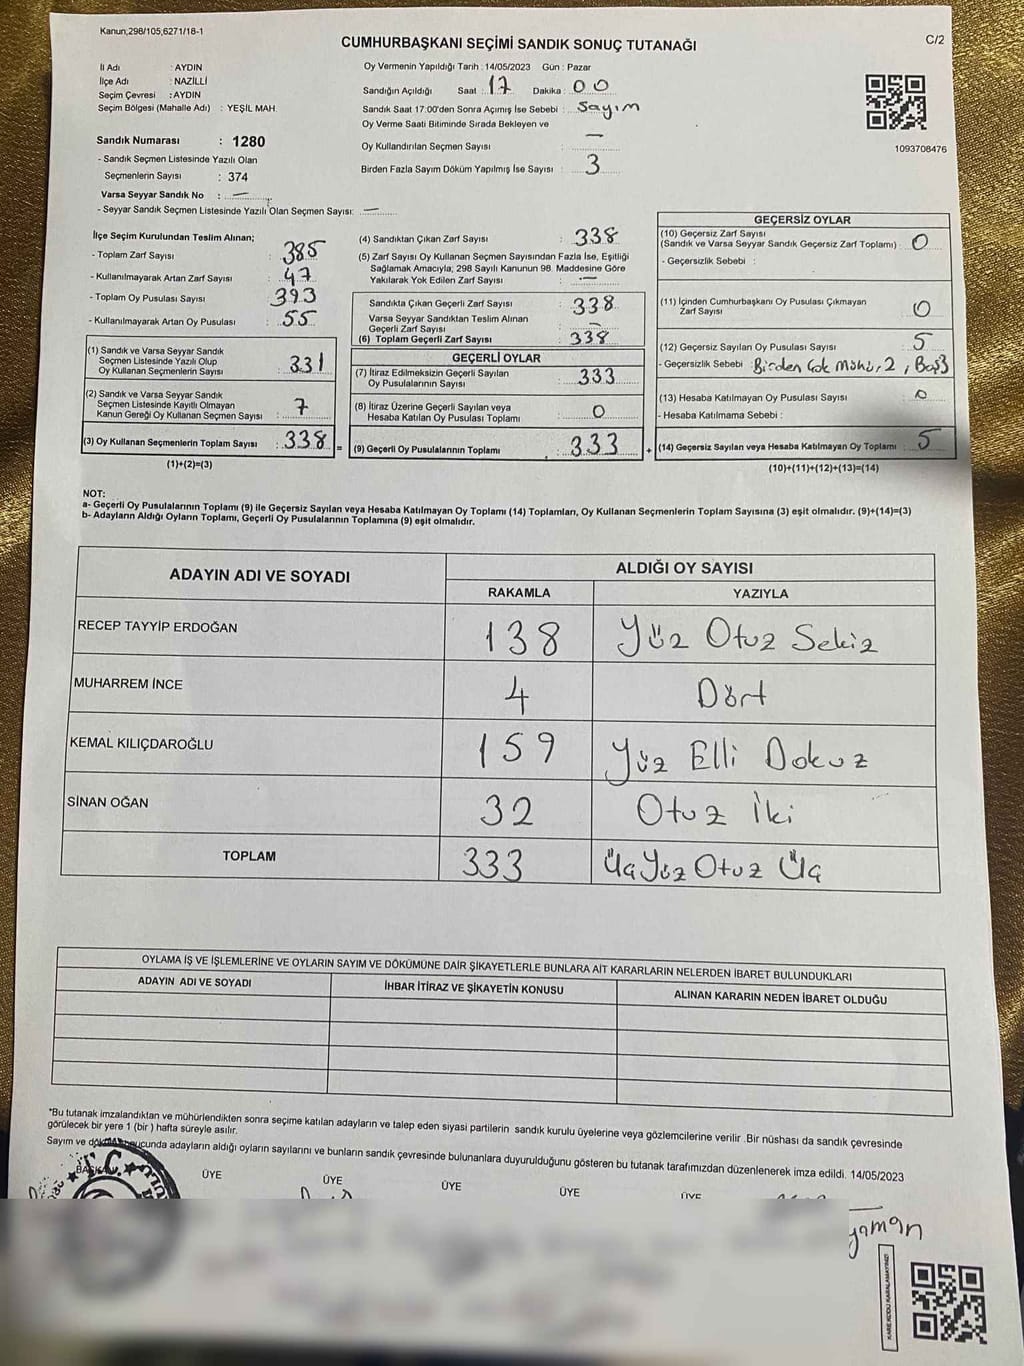 Kanun,298/105,6271/18-1
C/2
CUMHURBAŞKANI SEÇİMİ SANDIK SONUÇ TUTANAĞI
İl Adı : AYDIN
İlçe Adı : NAZİLLİ
Seçim Çevresi : AYDIN
Seçim Bölgesi (Mahalle Adı) : YEŞİL MAH.
Sandık Numarası : 1280
- Sandık Seçmen Listesinde Yazılı Olan
Seçmenlerin Sayısı : 374
Varsa Seyyar Sandık No : —
- Seyyar Sandık Seçmen Listesinde Yazılı Olan Seçmen Sayısı: —
Oy Vermenin Yapıldığı Tarih : 14/05/2023 Gün : Pazar
Sandığın Açıldığı Saat : 17 Dakika : 00
Sandık Saat 17:00'den Sonra Açımış İse Sebebi : Sayım
Oy Verme Saati Bitiminde Sırada Bekleyen ve
Oy Kullandırılan Seçmen Sayısı : —
Birden Fazla Sayım Döküm Yapılmış İse Sayısı : 3
1093708476
İlçe Seçim Kurulundan Teslim Alınan;
- Toplam Zarf Sayısı : 385
- Kullanılmayarak Artan Zarf Sayısı : 47
- Toplam Oy Pusulası Sayısı : 393
- Kullanılmayarak Artan Oy Pusulası : 55
(1) Sandık ve Varsa Seyyar Sandık
Seçmen Listesinde Yazılı Olup
Oy Kullanan Seçmenlerin Sayısı : 331
(2) Sandık ve Varsa Seyyar Sandık
Seçmen Listesinde Kayıtlı Olmayan
Kanun Gereği Oy Kullanan Seçmen Sayısı : 7
(3) Oy Kullanan Seçmenlerin Toplam Sayısı : 338 =
(1)+(2)=(3)
(4) Sandıktan Çıkan Zarf Sayısı : 338
(5) Zarf Sayısı Oy Kullanan Seçmen Sayısından Fazla İse, Eşitliği
Sağlamak Amacıyla; 298 Sayılı Kanunun 98. Maddesine Göre
Yakılarak Yok Edilen Zarf Sayısı : —
Sandıkta Çıkan Geçerli Zarf Sayısı : 338
Varsa Seyyar Sandıktan Teslim Alınan
Geçerli Zarf Sayısı : —
(6) Toplam Geçerli Zarf Sayısı : 338
GEÇERLİ OYLAR
(7) İtiraz Edilmeksizin Geçerli Sayılan
Oy Pusulalarının Sayısı : 333
(8) İtiraz Üzerine Geçerli Sayılan veya
Hesaba Katılan Oy Pusulası Toplamı : 0
(9) Geçerli Oy Pusulalarının Toplamı : 333 +
GEÇERSİZ OYLAR
(10) Geçersiz Zarf Sayısı
(Sandık ve Varsa Seyyar Sandık Geçersiz Zarf Toplamı) : 0
- Geçersizlik Sebebi :
(11) İçinden Cumhurbaşkanı Oy Pusulası Çıkmayan
Zarf Sayısı : 0
(12) Geçersiz Sayılan Oy Pusulası Sayısı : 5
- Geçersizlik Sebebi : Birden Çok Mühür, 2 , Boş3
(13) Hesaba Katılmayan Oy Pusulası Sayısı : 0
- Hesaba Katılmama Sebebi :
(14) Geçersiz Sayılan veya Hesaba Katılmayan Oy Toplamı : 5
(10)+(11)+(12)+(13)=(14)
NOT:
a- Geçerli Oy Pusulalarının Toplamı (9) ile Geçersiz Sayılan veya Hesaba Katılmayan Oy Toplamı (14) Toplamları, Oy Kullanan Seçmenlerin Toplam Sayısına (3) eşit olmalıdır. (9)+(14)=(3)
b- Adayların Aldığı Oyların Toplamı, Geçerli Oy Pusulalarının Toplamına (9) eşit olmalıdır.
ADAYIN ADI VE SOYADI
ALDIĞI OY SAYISI
RAKAMLA YAZIYLA
RECEP TAYYİP ERDOĞAN 138 Yüz Otuz Sekiz
MUHARREM İNCE 4 Dört
KEMAL KILIÇDAROĞLU 159 Yüz Elli Dokuz
SİNAN OĞAN 32 Otuz İki
TOPLAM 333 Üç Yüz Otuz Üç
OYLAMA İŞ VE İŞLEMLERİNE VE OYLARIN SAYIM VE DÖKÜMÜNE DAİR ŞİKAYETLERLE BUNLARA AİT KARARLARIN NELERDEN İBARET BULUNDUKLARI
ADAYIN ADI VE SOYADI İHBAR İTİRAZ VE ŞİKAYETİN KONUSU ALINAN KARARIN NEDEN İBARET OLDUĞU
*Bu tutanak imzalandıktan ve mühürlendikten sonra seçime katılan adayların ve talep eden siyasi partilerin sandık kurulu üyelerine veya gözlemcilerine verilir .Bir nüshası da sandık çevresinde
görülecek bir yere 1 (bir ) hafta süreyle asılır.
Sayım ve döküm sonucunda adayların aldığı oyların sayılarını ve bunların sandık çevresinde bulunanlara duyurulduğunu gösteren bu tutanak tarafımızdan düzenlenerek imza edildi. 14/05/2023
BAŞKAN ÜYE ÜYE ÜYE ÜYE ÜYE
T.C.
yaman
KARE KODU KARALAMAYINIZ!